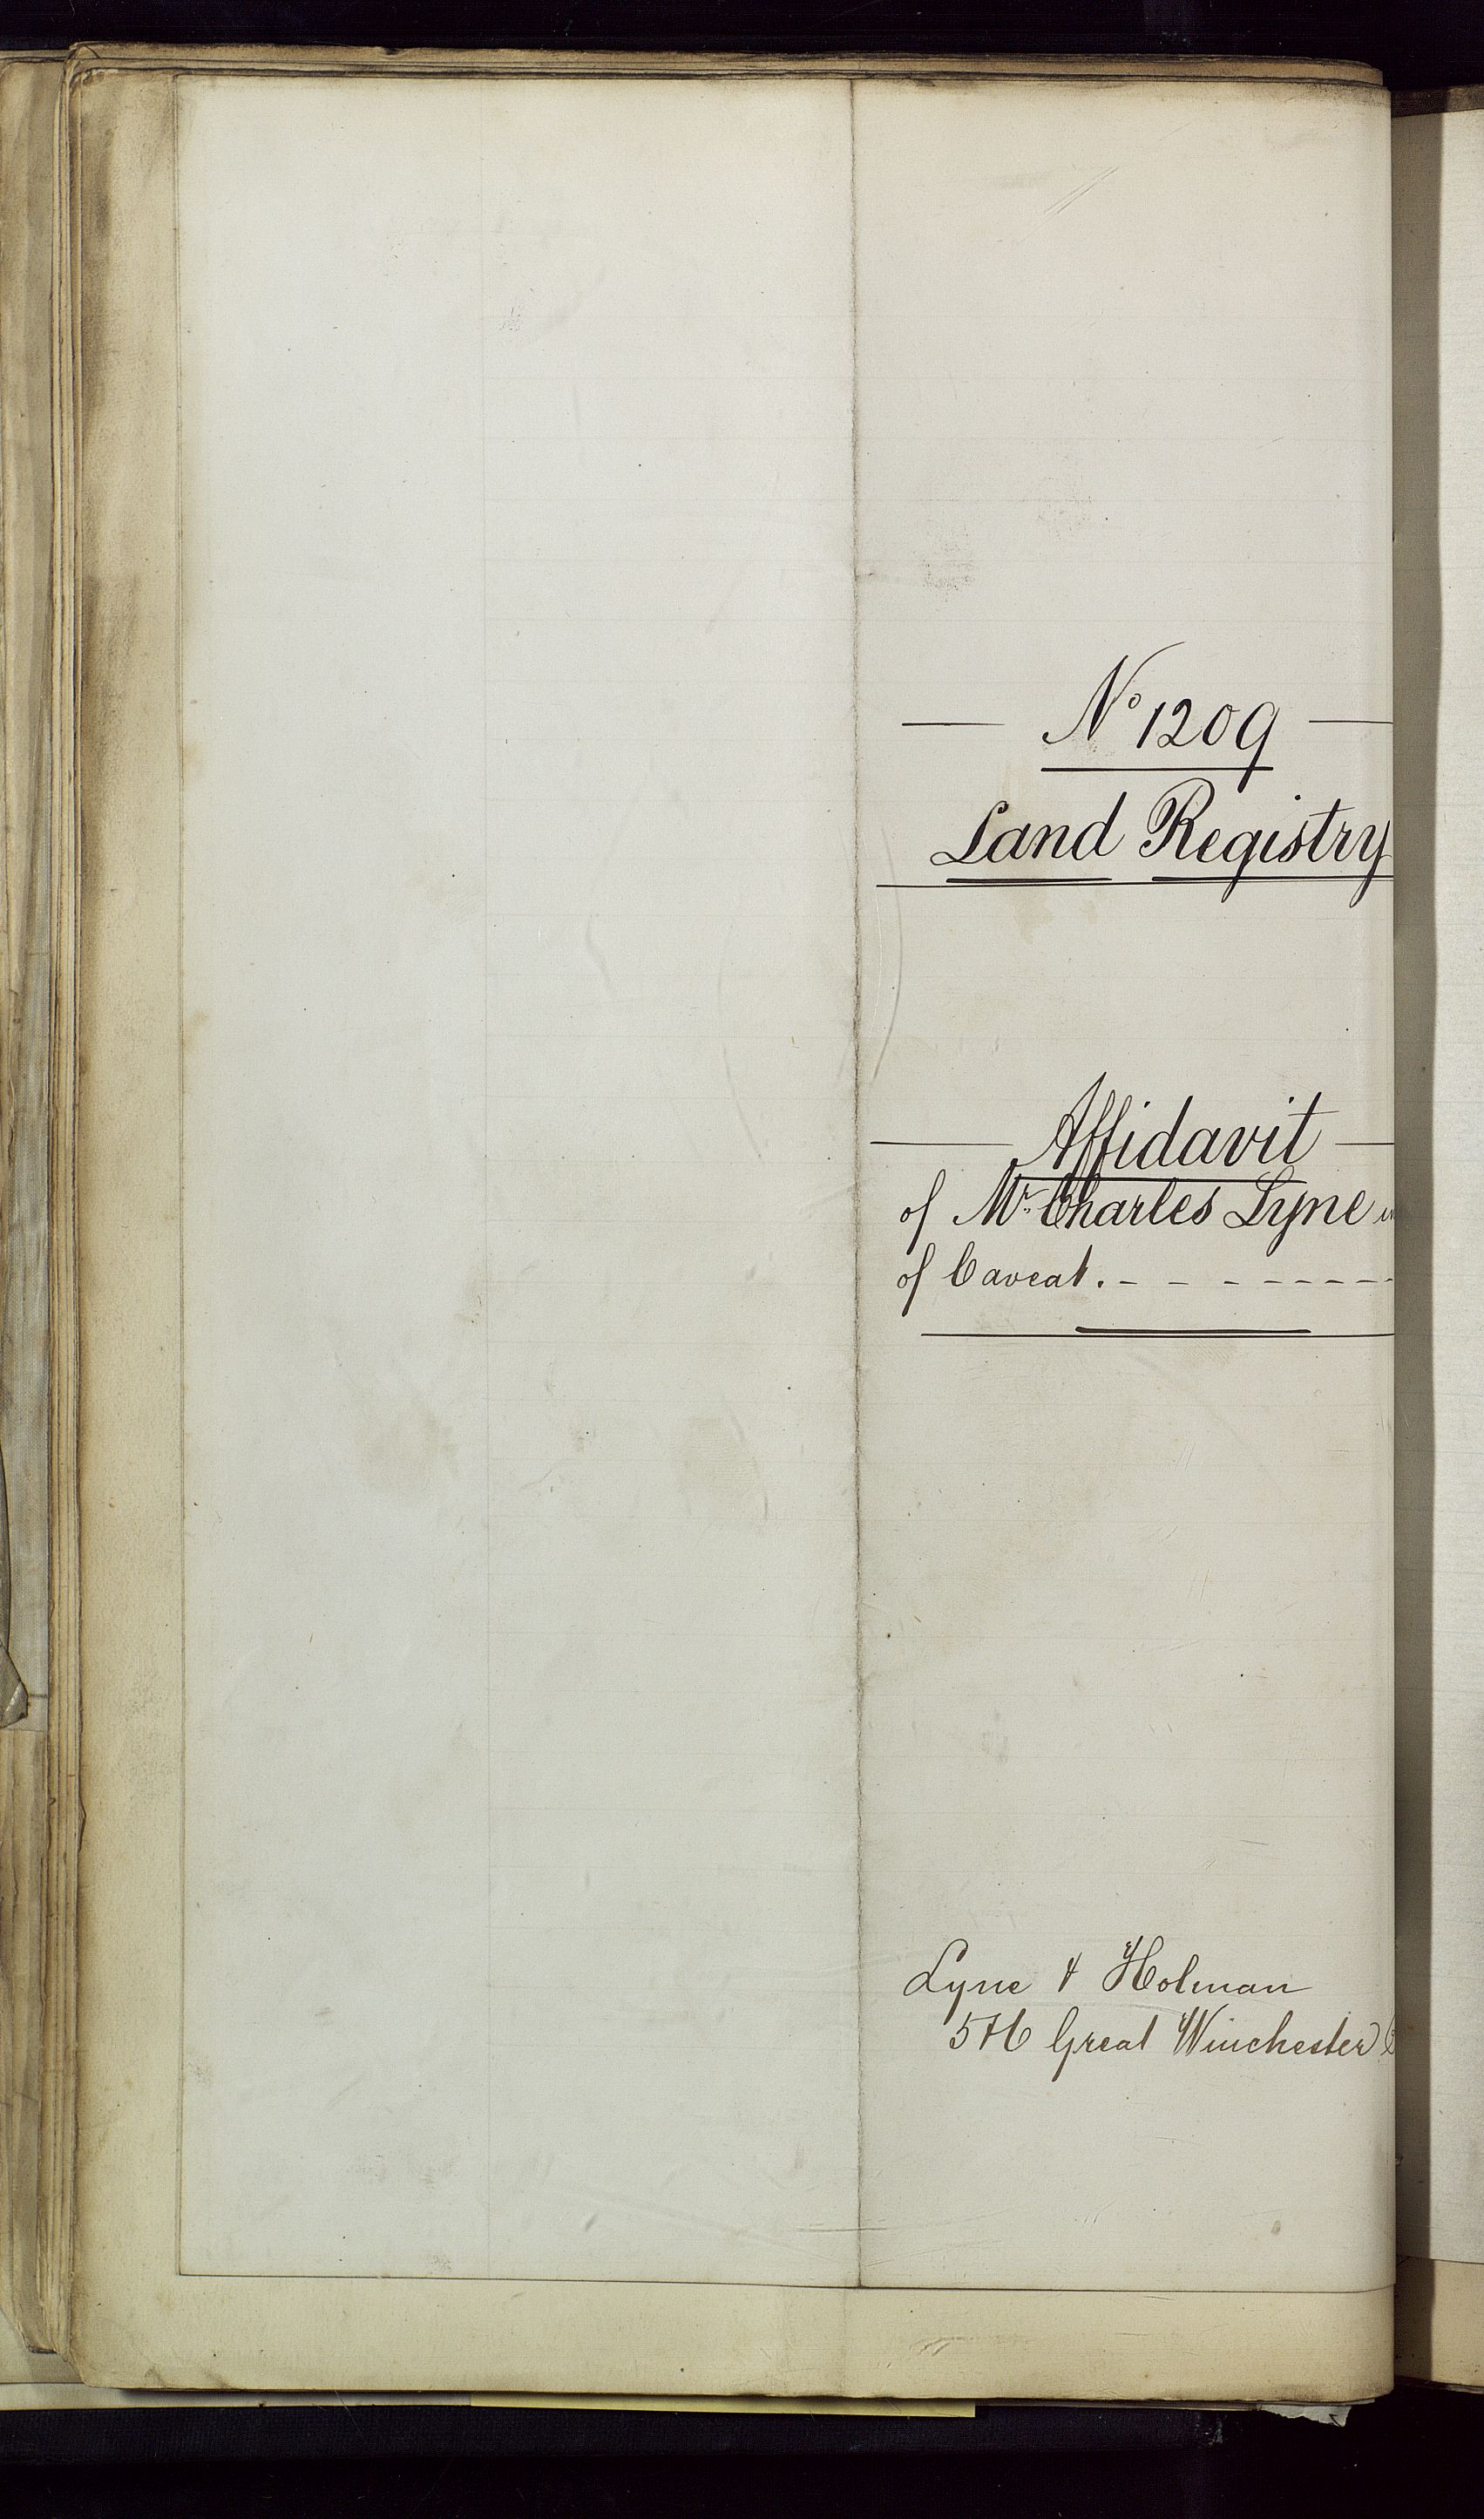 Nº 1209
Land Registry
Affidavit
of Mr. Charles Lyne
of Caveat. - - - - - - - -
Lyne & Holman
Great Winchester